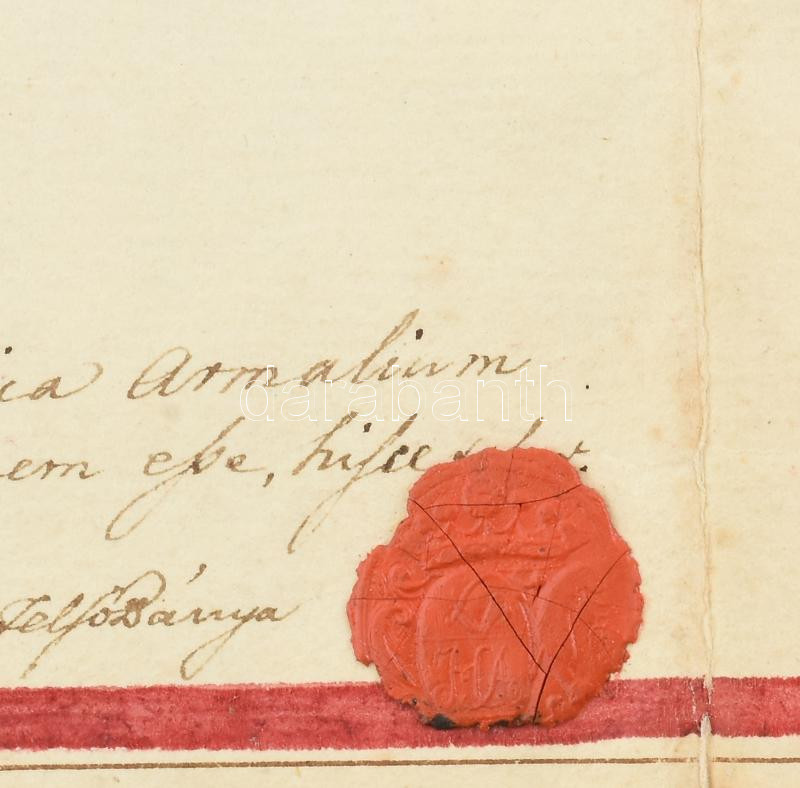 ia Armalium
darabanth
em eſse, hisce
FelsőBánya